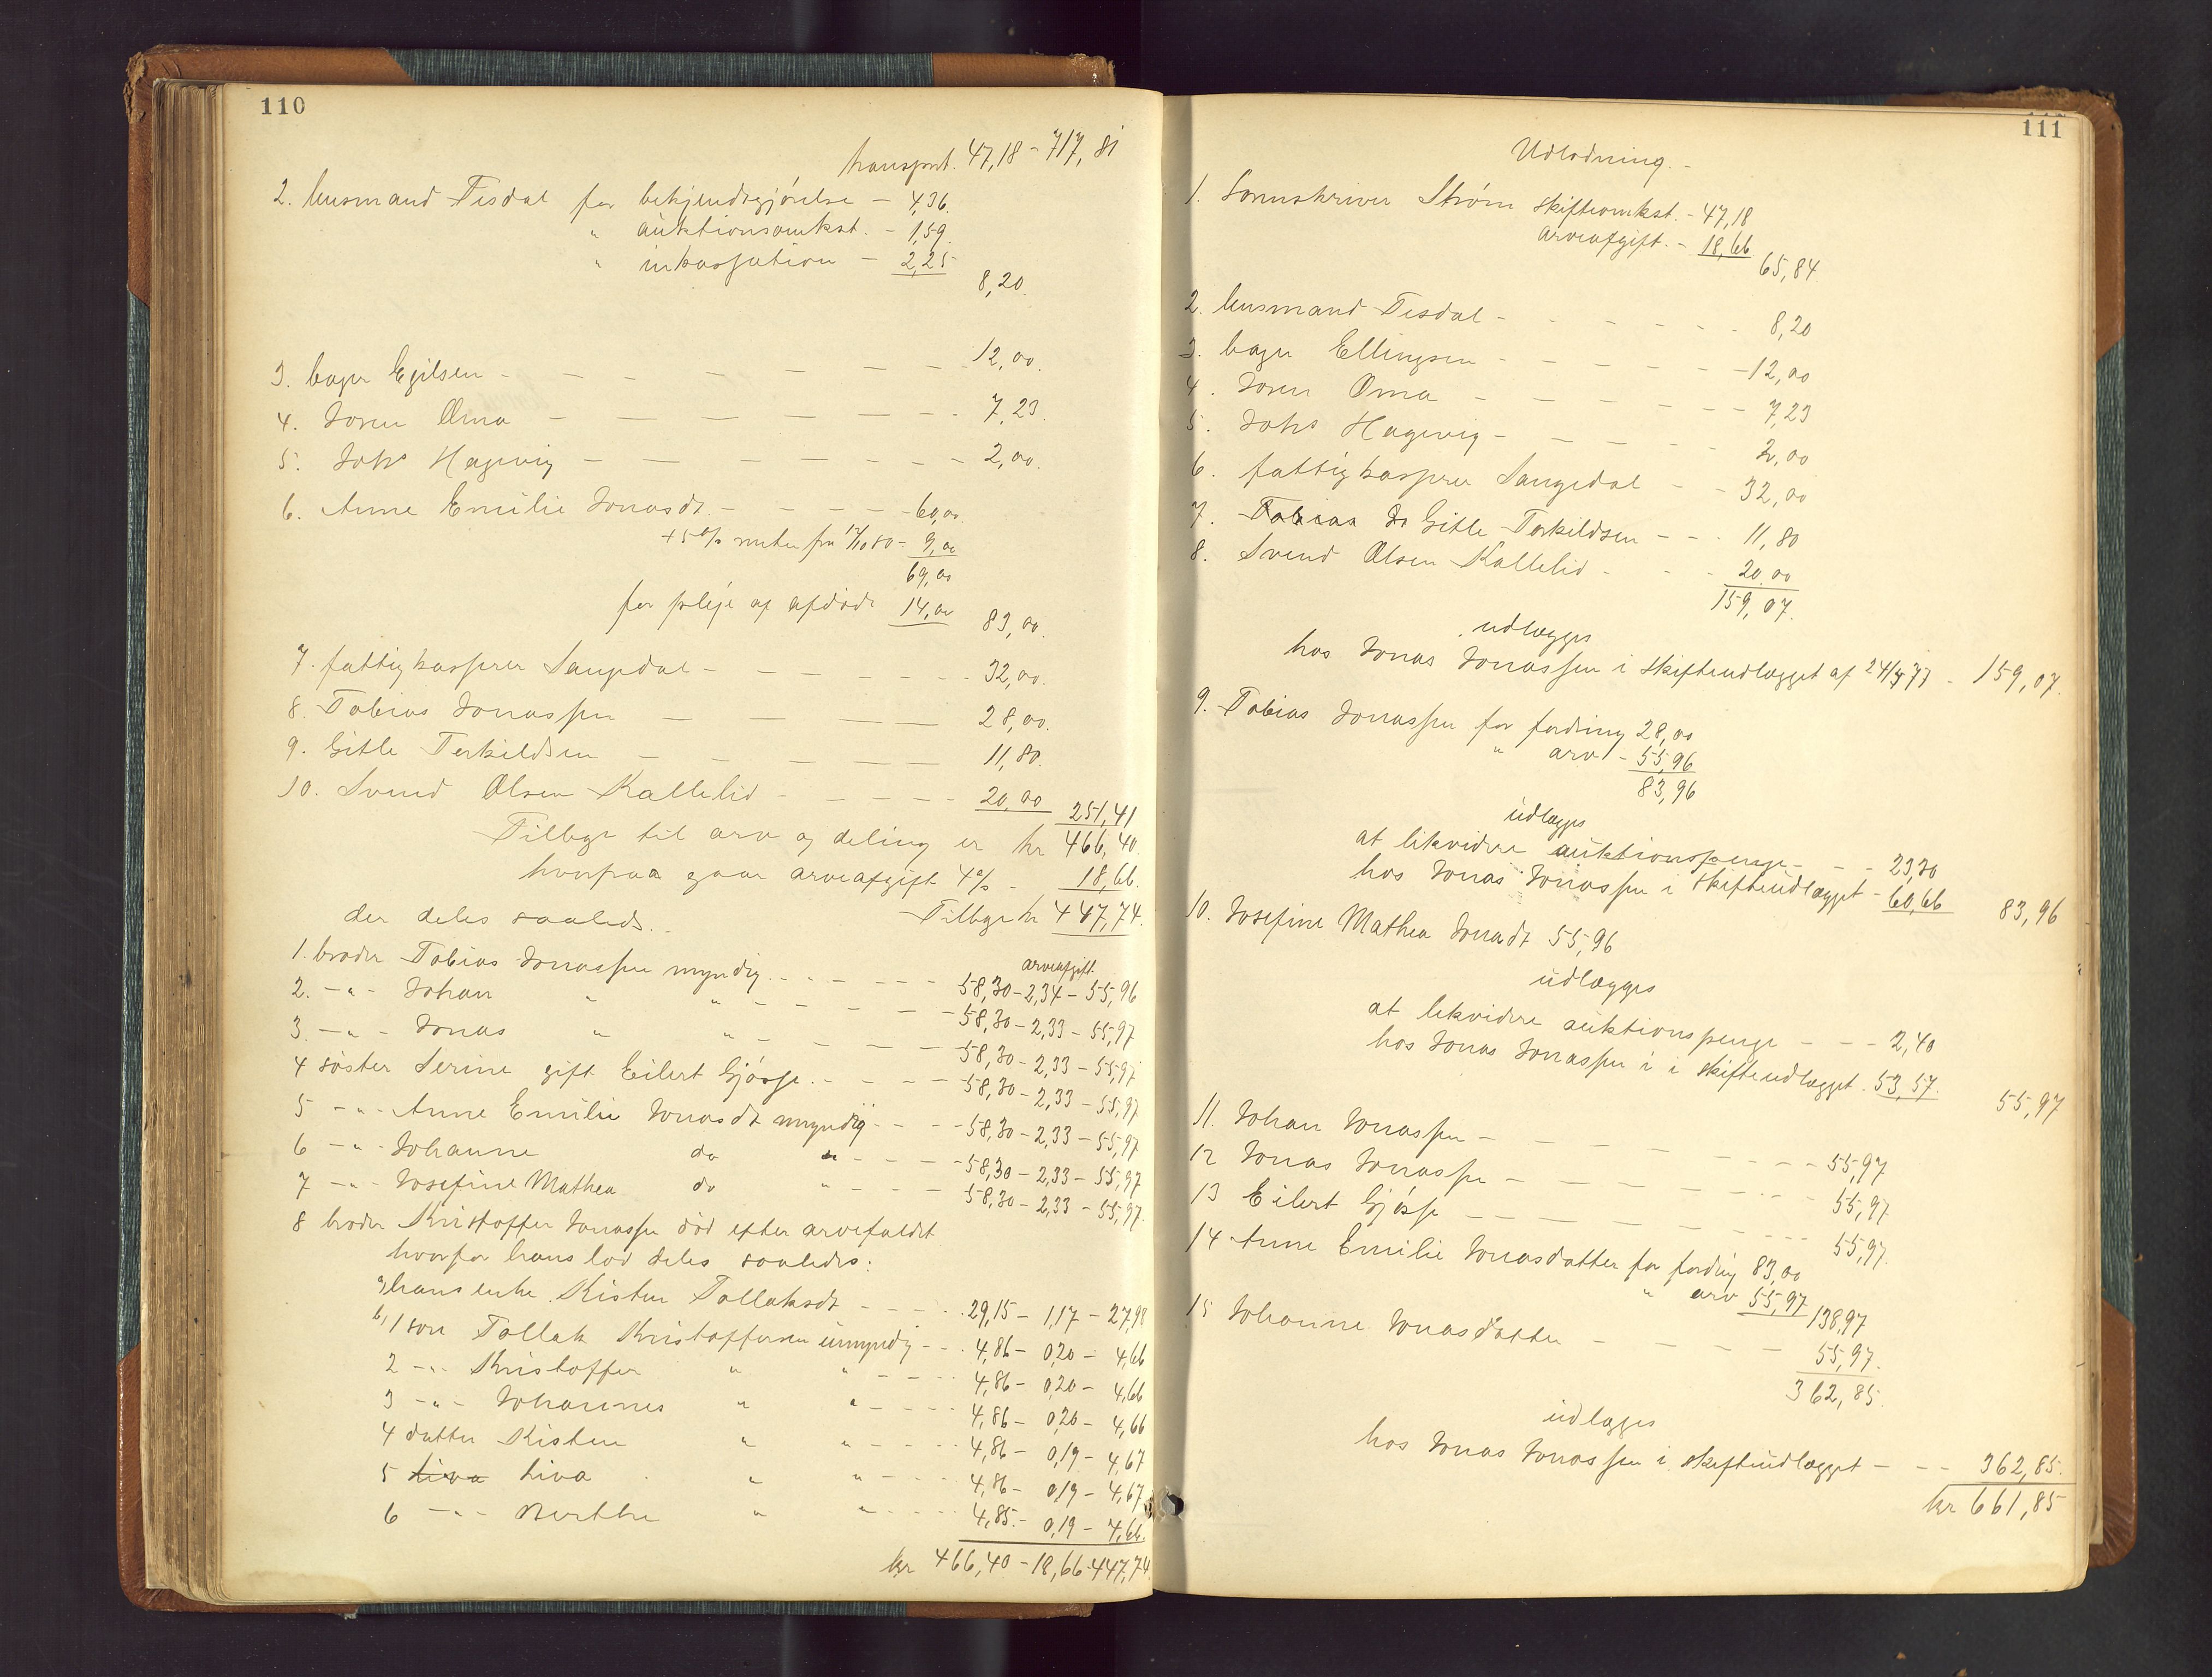 110
transport. 47,18 - 717,81
2. husmand Tisdal for bekjendtgjörelse - 4,36.
" auktionsomkst. - 1,59.
" inkassation - 2,25
8,20.
3. bager Egilsen - 12,00.
4. Soren Ærna - 7,23.
5. Johs Hagevig - 2,00.
6. Anne Emilie Jonasdt. - 60,00
+ 5% renter fra 12/10 80 - 9,00
69,00
for pleje af afdöde 14,00 83,00.
7. fattigkasserer Sangedal - 32,00.
8. Tobias Jonassen - 28,00.
9. Gitle Terkildsen - 11,80.
10. Svend Olsen Kallelid - 20,00 251,41
Tilbage til arv og deling er kr 466,40.
hvorpaa gaar arveafgift 4% - 18,66.
der deles saaleds. - Tilbage kr 447,74.
arveafgift.
1. broder Tobias Jonassen myndig. - 58,30 - 2,34 - 55,96
2. - " - Johan " " - 58,30 - 2,33 - 55,97
3 - " - Jonas " " - 58,30 - 2,33 - 55,97
4 söster Serine gift Eilert Gjösse. - 58,30 - 2,33 - 55,97
5 - " - Anne Emilie Jonasdt myndig - 58,30 - 2,33 - 55,97
6 - " - Johanne do " - 58,30 - 2,33 - 55,97
7 - " - Josefine Mathea do " - 58,30 - 2,33 - 55,97.
8 broder Kristoffer Jonassen död efter arvefaldet
hvorfor hans lod deles saaledes:
a, hans enke Kisten Tollaksdt - 29,15 - 1,17 - 27,98
b, 1 sön Tollak Kristoffersen umyndig - 4,86 - 0,20 - 4,66
2 - " - Kristoffer " " - 4,86 - 0,20 - 4,66
3 - " - Johannes " " - 4,86 - 0,20 - 4,66
4 datter Kisten " " - 4,86 - 0,19 - 4,67
5 Liva Liva " " - 4,86 - 0,19 - 4,67
6 - " - Berthe " " - 4,85. - 0,19 - 4,66.
kr 466,40 - 18,66 - 447,74
111
Udlodning. -
1. Sorenskriver Strøm skifteomkst. - 47,18
arveafgift. - 18,66
65,84.
2. husmand Tisdal - 8,20
3. bager Ellingsen - 12,00
4. Soren Ærna - 7,23
5. Johs Hagevig - 2,00
6. fattigkasserer Sangedal - 32,00
7. Gitle Terkildsen - 11,80
8. Svend Olsen Kallelid - 20,00
159,07.
udlægges
hos Jonas Jonassen i skifteudlægget af 24/4 77 - 159,07.
9. Tobias Jonassen for fordring 28,00
" arv - 55,96
83,96
udlægges
at likvidere auktionspenge - 23,30
hos Jonas Jonassen i skifteudlægget - 60,66 83,96
10. Josefine Mathea Jonadt 55,96
udlægges
at likvidere auktionspenge - 2,40
hos Jonas Jonassen i i skifteudlægget. 53,57. 55,97
11. Johan Jonassen - 55,97
12 Jonas Jonasse - 55,97
13 Eilert Gjösse - 55,97.
14 Anne Emilie Jonasdatter for fordring 83,00
" arv 55,97 138,97
15 Johanne Jonasdatter - 55,97.
362,85.
udlægges
hos Jonas Jonassen i skifteudlægget - 362,85.
kr 661,85